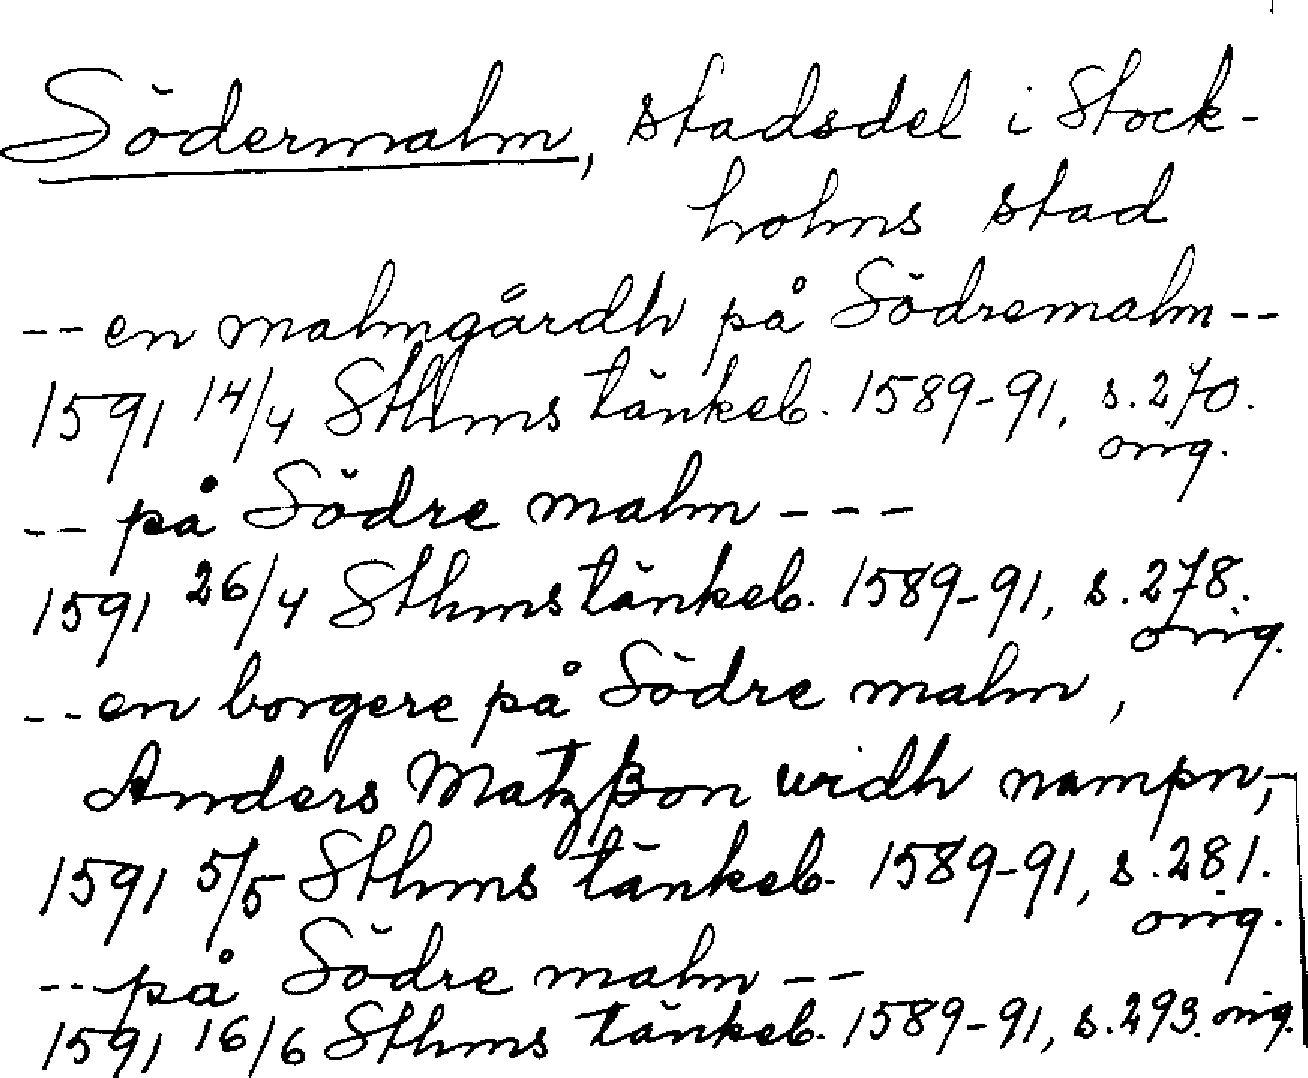 Södermalm, stadsdel i Stock-
holms stad
-- en malmgårdh på Södremalm --
1591 14/4 Sthms tänkeb. 1589-91, s. 270.
orig.
-- på Södre malm ---
1591 26/4 Sthms tänkeb. 1589-91, s. 278.
orig.
-- en borgere på Södre malm,
Anders Matzßon widh nampn,-
1591 5/5 Sthms tänkeb. 1589-91, s. 281.
orig.
-- på Södre malm --
1591 16/6 Sthms tänkeb. 1589-91, s. 293. orig.